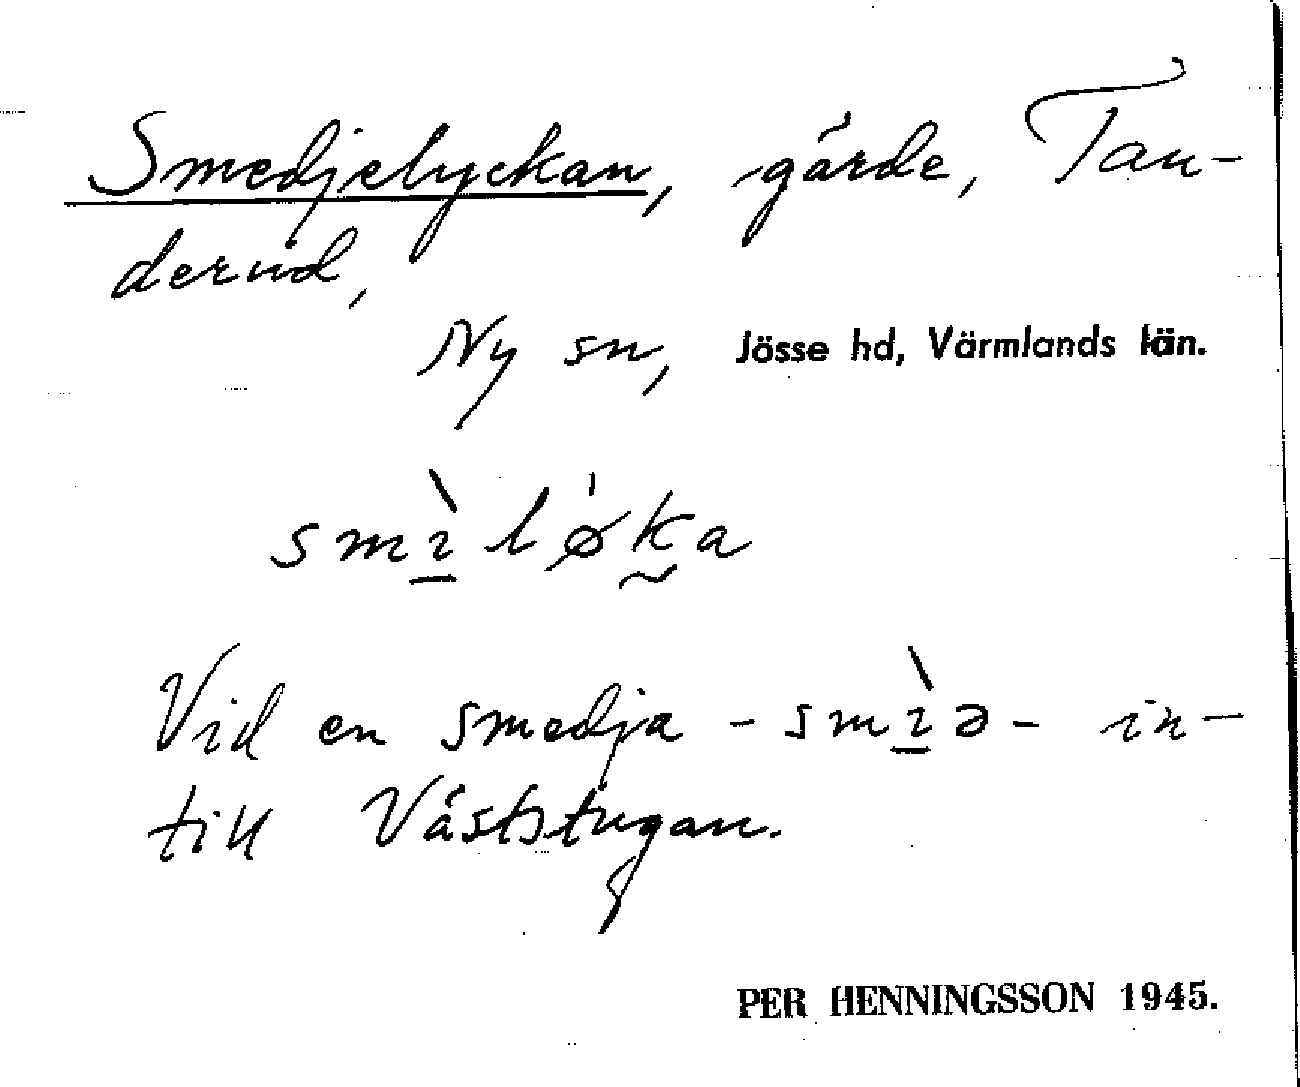 Smedjelyckan, gärde, Tan-
derud,
Ny sn, Jösse hd, Värmlands län.
smı̱̀ løˈk̰a
Vid en smedja - smı̱̀ə - in-
till Väststugan.
PER HENNINGSSON 1945.